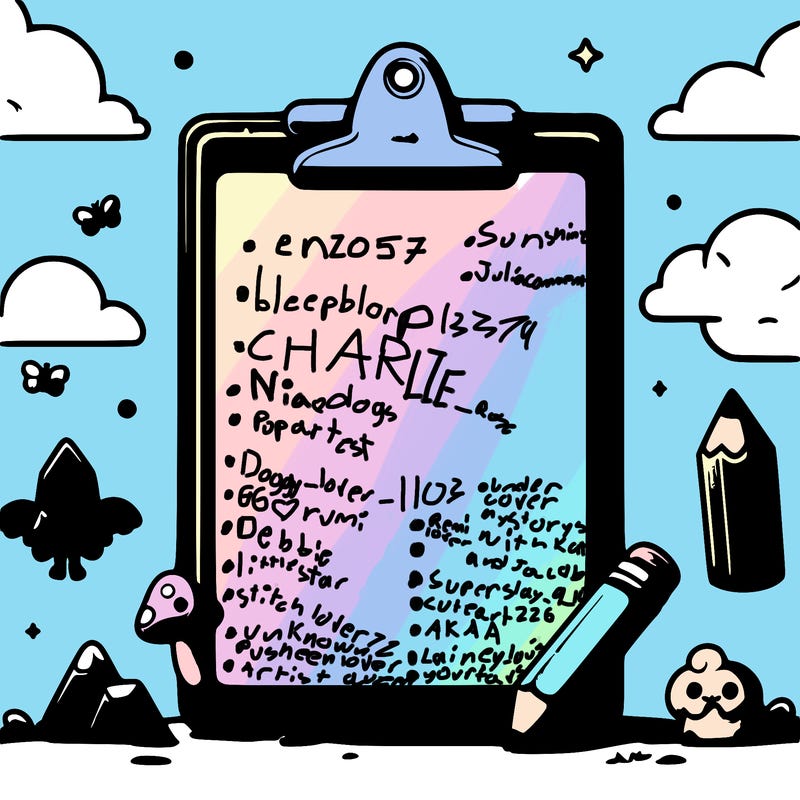 enzo57
bleepblorp13374
CHARLIE_Rose
Niaedogs
Popartest
Doggy_lover_1103
GG♡rumi
Debbie
littlestar
stitchlover22
unknown22
pusheenlover
Artist
Sunshine
Juliacomm
under
cover
mystorys
with Kat
and Jacob
Remi
lover
Superslay_a
cuteart226
AKAA
Laineylou
yourfav